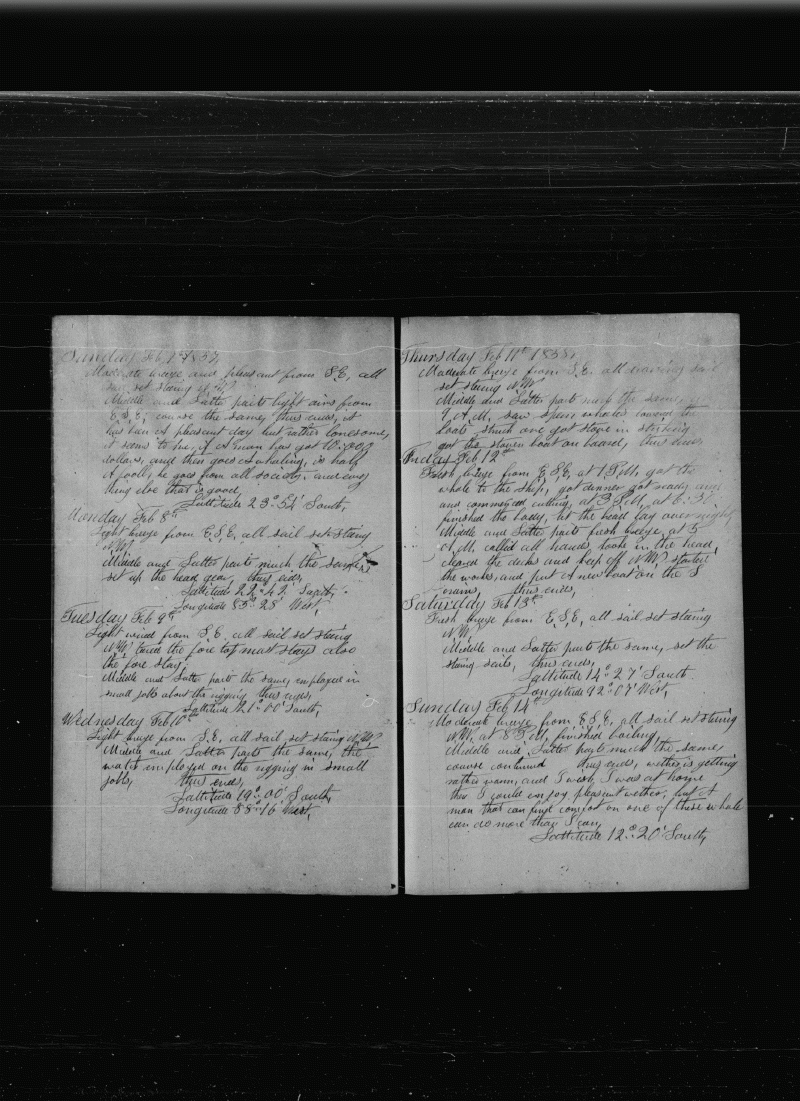 Sunday Feb 1858,
Moderate breeze and plesant from S.E, all
sail set stering N.W.
Middle and Latter parts light airs from
E.S.E, course the same, thus ends, it
has ben a plesent day but rather lonesome,
it seems to me, if A man has got 10.000
dollars, and then goes A whaling, is half
A fool, he goes from all society, and every
thing else that is good
Lattitude 23°-54' South,
Monday Feb 8th
Light breeze from E.S.E, all sail set stering
N.W,
Middle and Latter parts much the same
set up the head gear, thus ends,
Lattitude 22°-42' South,
Longitude 85°-28' West,
Tuesday Feb 9th
Light wind from S.E, all sail set stering
N.W. tared the fore top mast stays also
the fore stay
Middle and Latter parts the same, employed in
small jobs about the rigging thus ends,
Lattitude 21°-00' South,
Wednesday Feb 10th
Light breeze from S.E, all sail set stering N.W.
Middle and Latter parts the same, the
watch employed on the rigging in small
jobs, thus ends,
Lattitude 19°-00' South,
Longitude 88°-16' West,
Thursday Feb 11th 1858,
Moderate breeze from S.E. all sail
set stering N.W.
Middle and Latter parts much the same,
9 A.M, saw Sperm whales lowerd the
boats struck one got stove in
got the stoven boat on board, thus ends
Friday Feb 12th
Fresh breeze from E.S.E, at 1 P.M, got the
whale to the ship, got dinner got ready and
and commenced cutting, at 3 P.M, at 6.30
finished the body, let the head lay over night
Middle and Latter parts fresh breeze at 5
A.M, called all hands, took in the head
cleared the decks and kept off N.W. started
the works, and put A new boat on the S
crains, thus ends,
Saturday Feb 13th
Fresh breeze from E.S.E, all sail set stering
N.W.
Middle and Latter parts the same, set the
stering sails, thus ends,
Lattitude 14°-27' South
Longitude 92°-07' West,
Sunday Feb 14th
Moderate breeze from E.S.E, all sail set stering
N.W, at 8 P.M, finished boiling,
Middle and Latter parts much the same,
course continued thus ends, wether is getting
rather warm, and I wish I was at home
then I could enjoy pleasent wether, but A
man that can find comfort on one of these whale
can do more than I can,
Lattitude 12°-20' South,